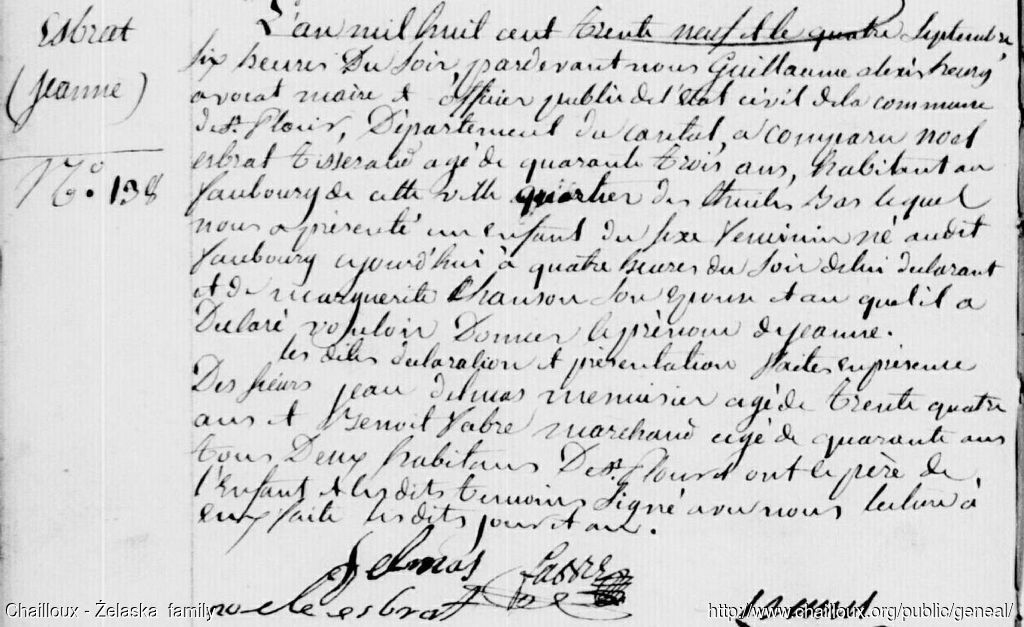 Esbrat
(Jeanne)
N.º 138
L'an mil huit cent trente neuf et le quatre Septembre
six heures Du soir pardevant nous Guillaume alexis
avocat maire et officier public de l'état civil de la commune
de St. Flour, Département du cantal, a comparu noel
esbrat tisserand agé de quarante trois ans, habitant au
faubourg de cette ville quartier des thuiles bas lequel
nous a présenté un enfant du sexe feminin né au dit
faubourg ajourd'hui à quatre heures du soir de lui declarant
et de marguerite Chanson son epouse et au quel il a
Declaré vouloir Donner le prénom de jeanne.
les dites déclaration et présentation faites en présence
Des sieurs jean delmas menuisier agé de trente quatre
ans et Benoit Vabre marchand agé de quarante ans
tous Deux habitans De St. Flour et ont le père de
l'enfant et les dits temoins signé avec nous lecture à
eux faite les dits jour et an.
Delmas Vabre
noele esbrat
Chailloux - Želaska family
http://www.chailloux.org/public/geneal/